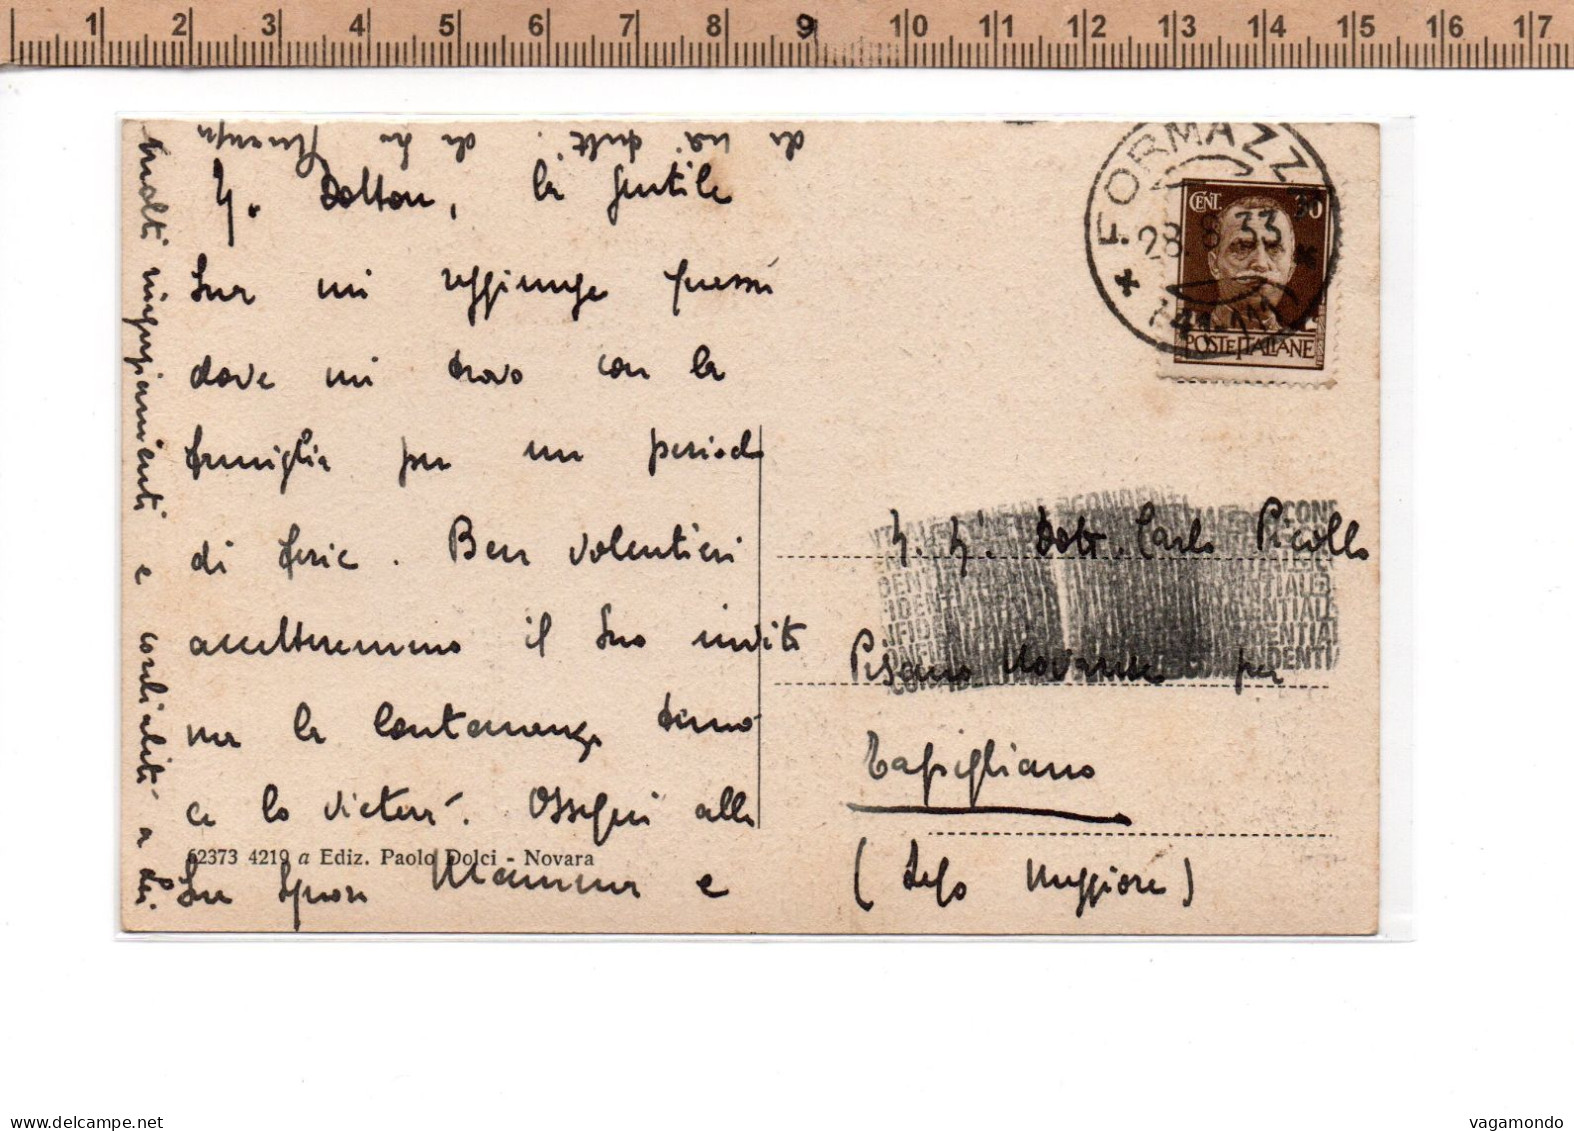 1 2 3 4 5 6 7 8 9 10 11 12 13 14 15 16 17
Dottore, la gentile
Sua mi raggiunge quassù
dove mi trovo con la
famiglia per un periodo
di ferie. Ben volentieri
accetteremmo il Suo invito
ma la lontananza
ce lo vieterà. Ossequi alla
Sua Signora Mamma e
62373 4219 a Ediz. Paolo Dolci - Novara
molti ringraziamenti e cordialità a Lei.
da
FORMAZZ
28.8.33
CENT. 30
POSTE ITALIANE
CONFIDENTIAL
Dott. Carlo Piccollo
Pisano Novarese per
Tapigliano
(Lago Maggiore)
delcampe.net
vagamondo